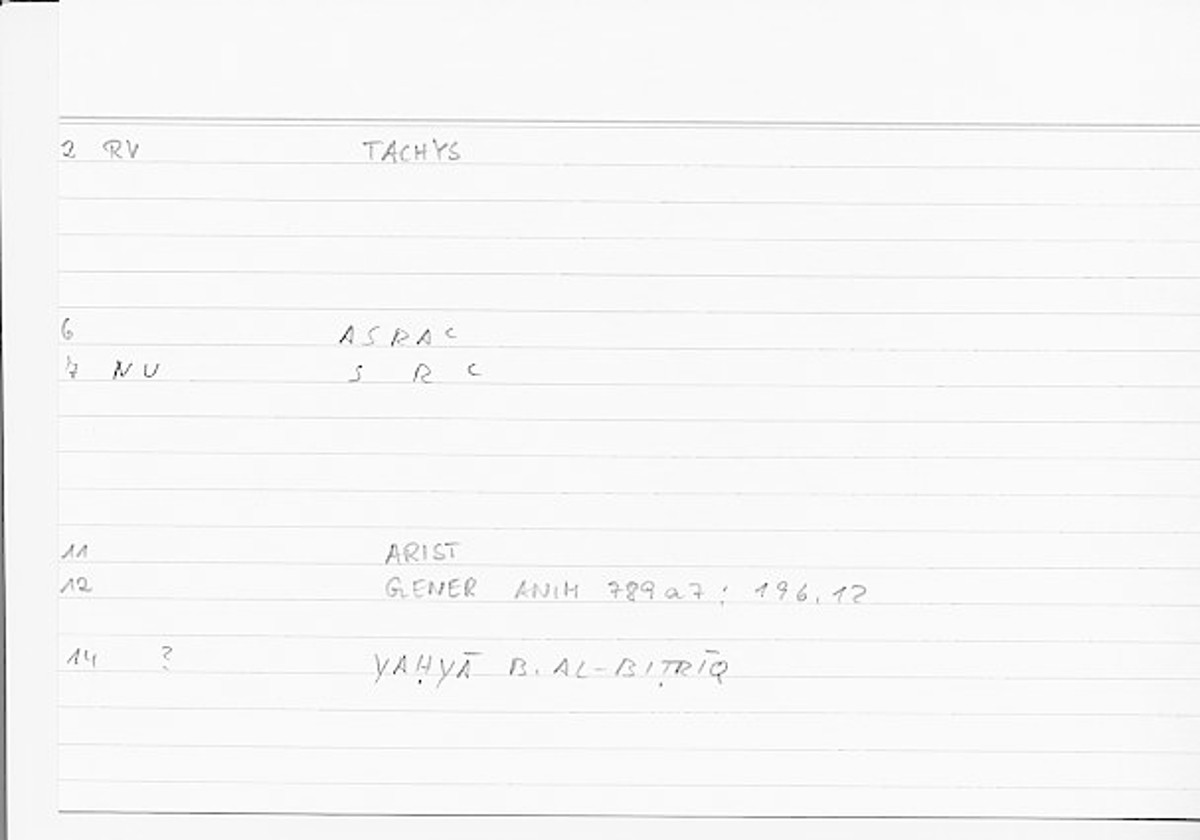 2 RV TACHYS
6 ASRAC
7 NU S R C
11 ARIST
12 GENER ANIM 789a7; 196.12
14 ? YAḤYĀ B. AL-BIṬRĪQ